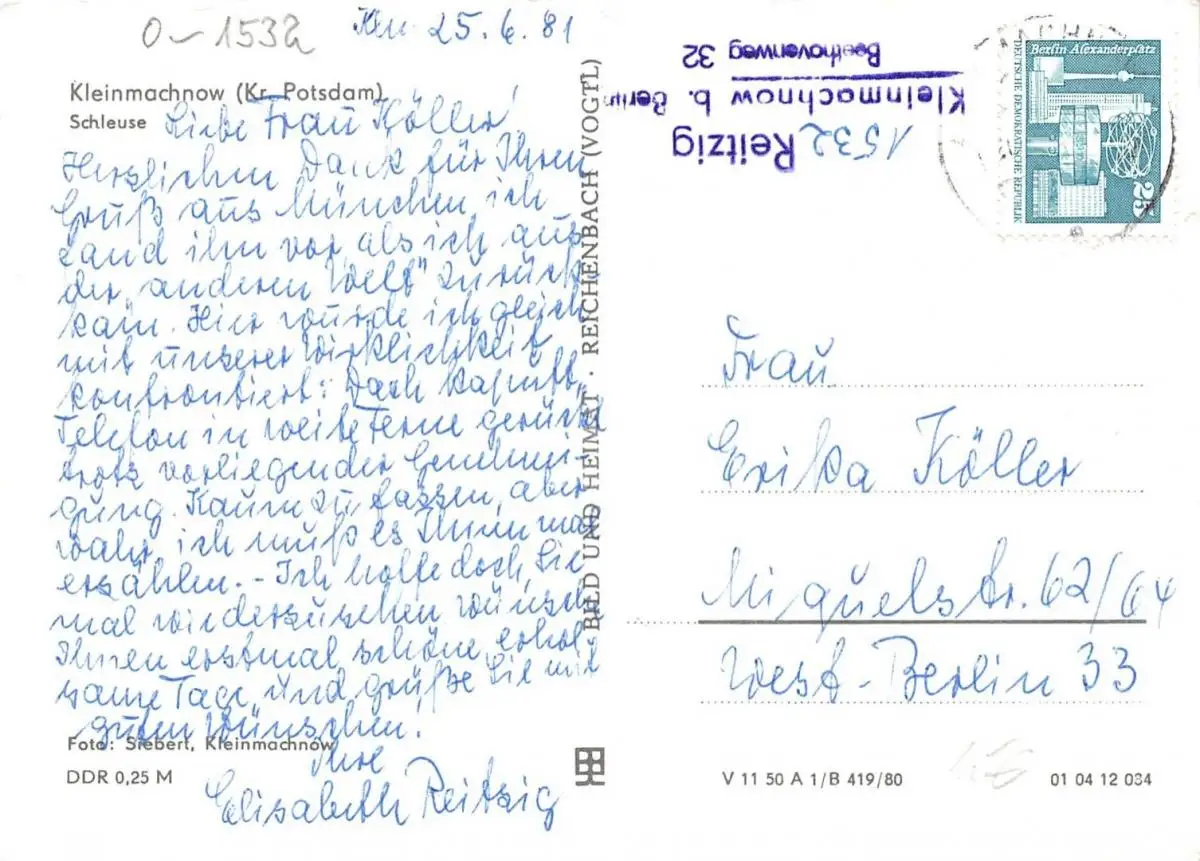 0-1532
25.6.81
Kleinmachnow (Kr. Potsdam)
Schleuse
Liebe Frau Köller!
Herzlichen Dank für Ihren
Gruß aus München, ich
fand ihn vor, als ich aus
der „anderen Welt" zurück
kam. Hier wurde ich gleich
mit unserer Wirklichkeit
konfrontiert: Dach kaputt,
Telefon in weite Ferne gerückt
trotz vorliegender Genehmi-
gung. Kaum zu fassen, aber
wahr, ich muß es Ihnen mal
erzählen. - Ich hoffe doch, Sie
mal wiederzusehen, wünsche
Ihnen erstmal schöne, erhol-
same Tage und grüße Sie mit
guten Wünschen!
Ihre
Elisabeth Reitzig
Foto: Siebert, Kleinmachnow
DDR 0,25 M
BILD UND HEIMAT · REICHENBACH (VOGTL)
Reitzig
1532
Kleinmachnow b. Berlin
Beethovenweg 32
Berlin Alexanderplatz
DEUTSCHE DEMOKRATISCHE REPUBLIK
25
Frau
Erika Köller
Miquelstr. 62/64
West-Berlin 33
V 11 50 A 1/B 419/80
01 04 12 084